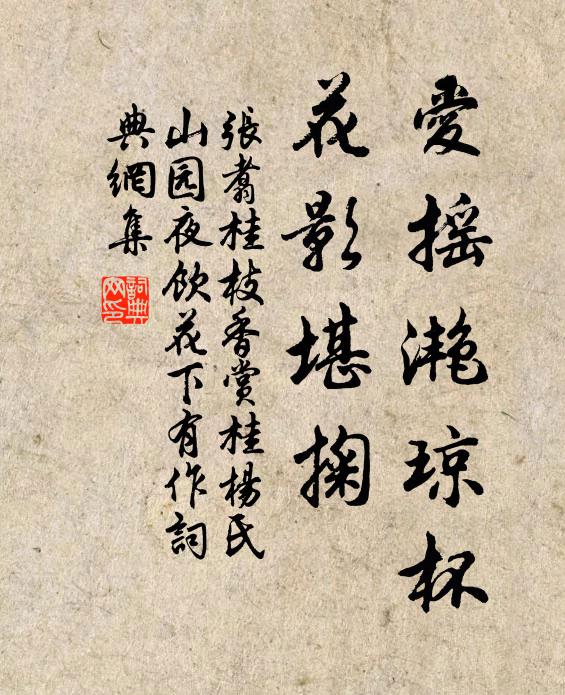 愛摇滟琼杯
花影堪掬
張翥桂枝香賞桂楊氏
山园夜飲花下有作詞
典網集
詞典
网印